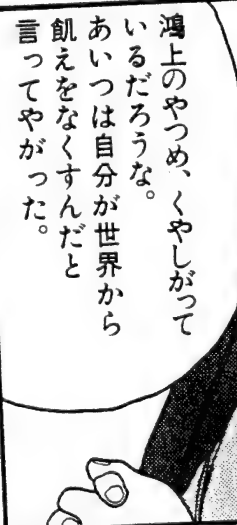 鴻上のやつめ、くやしがって
いるだろうな。
あいつは自分が世界から
飢えをなくすんだと
言ってやがった。